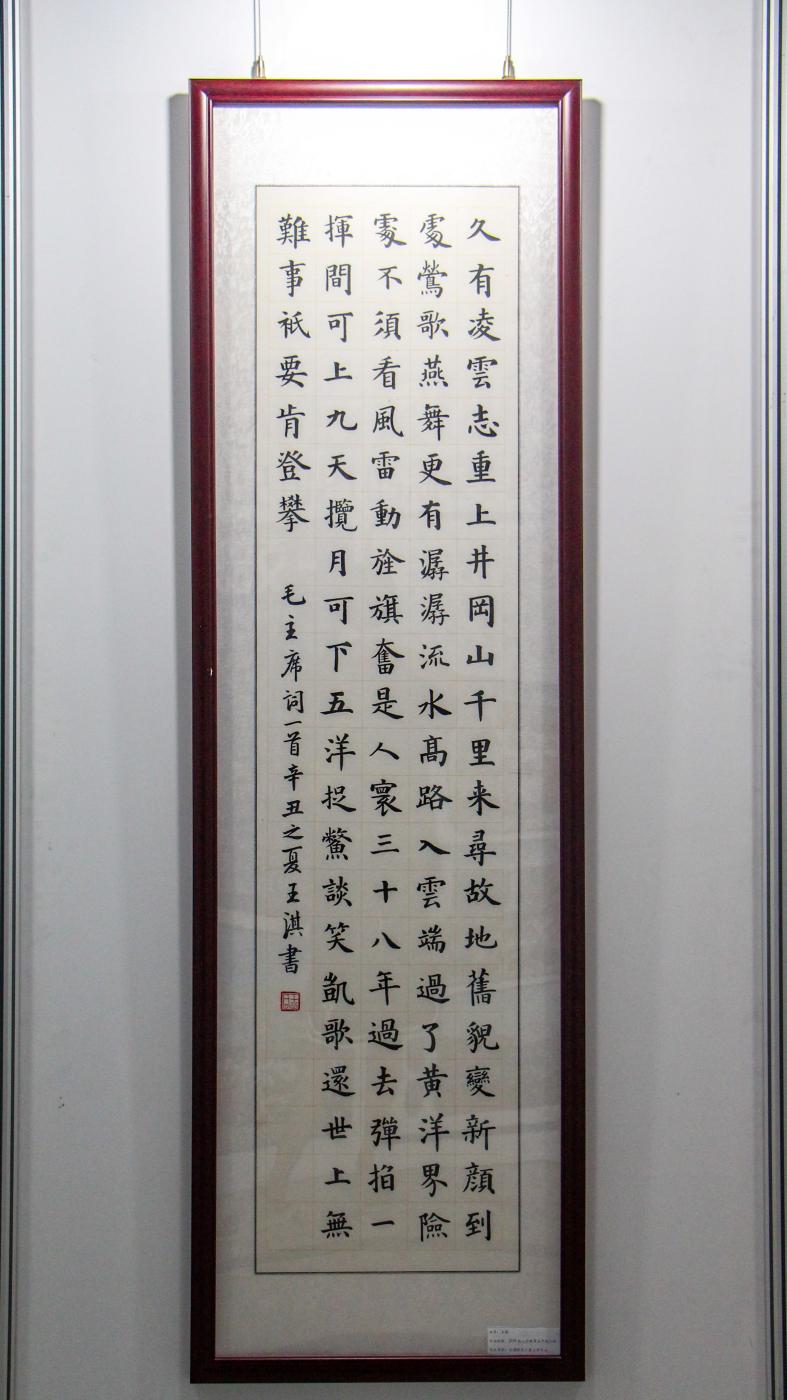 久有凌雲志重上井岡山千里来尋故地舊貌變新顔到
處鶯歌燕舞更有潺潺流水高路入雲端過了黄洋界險
處不須看風雷動旌旗奮是人寰三十八年過去彈指一
揮間可上九天攬月可下五洋捉鱉談笑凱歌還世上無
難事衹要肯登攀
毛主席词一首辛丑之夏王淇書